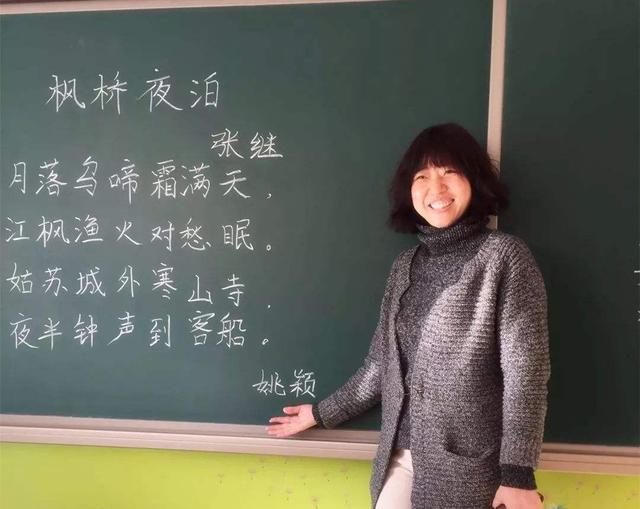 枫桥夜泊
张继
月落乌啼霜满天，
江枫渔火对愁眠。
姑苏城外寒山寺，
夜半钟声到客船。
姚颖